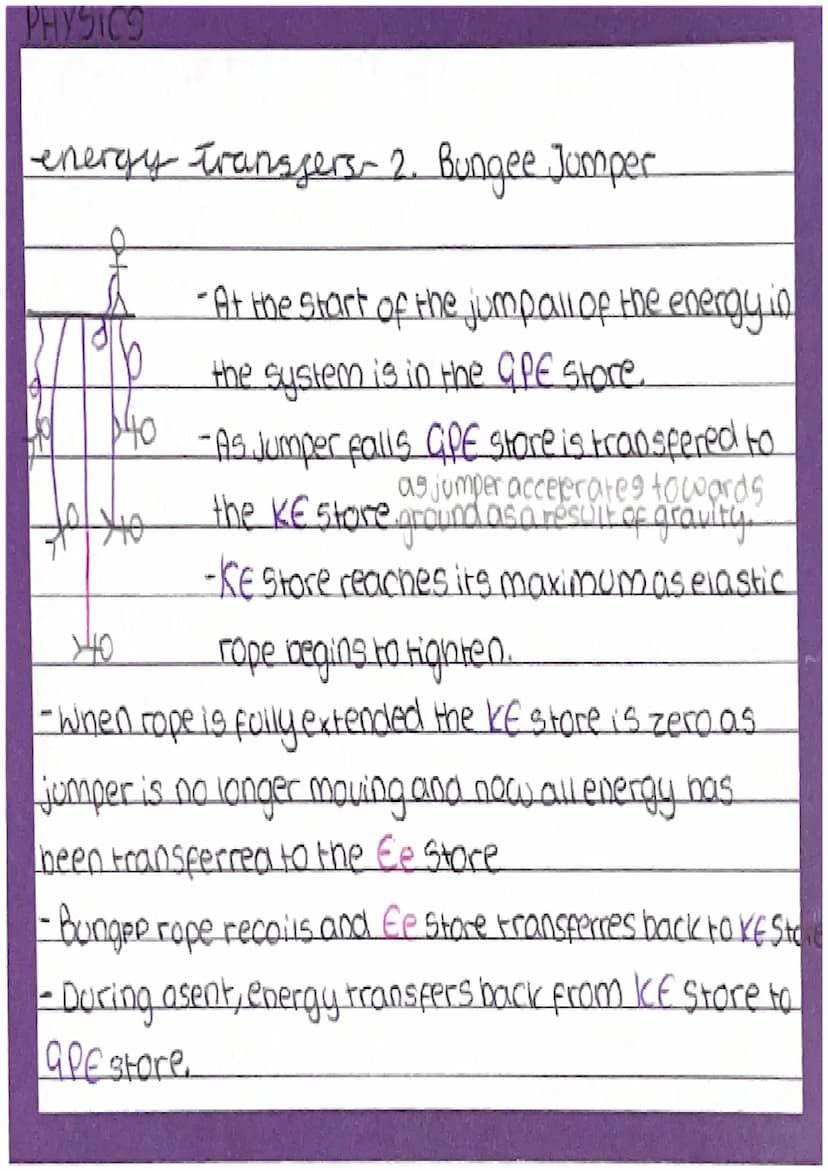 PHYSICS
energy transfers- 2. Bungee Jumper
-At the start of the jump all of the energy in
the system is in the GPE store.
-As jumper falls GPE store is transfered to
as jumper accelerates towards
the KE store. ground as a result of gravity.
-KE store reaches its maximum as elastic
rope begins to tighten.
-When rope is fully extended the KE store is zero as
jumper is no longer moving and now all energy has
been transferred to the Ee store
-Bungee rope recoils and Ee store transferres back to KE store
-During asent, energy transfers back from KE store to
GPE store.